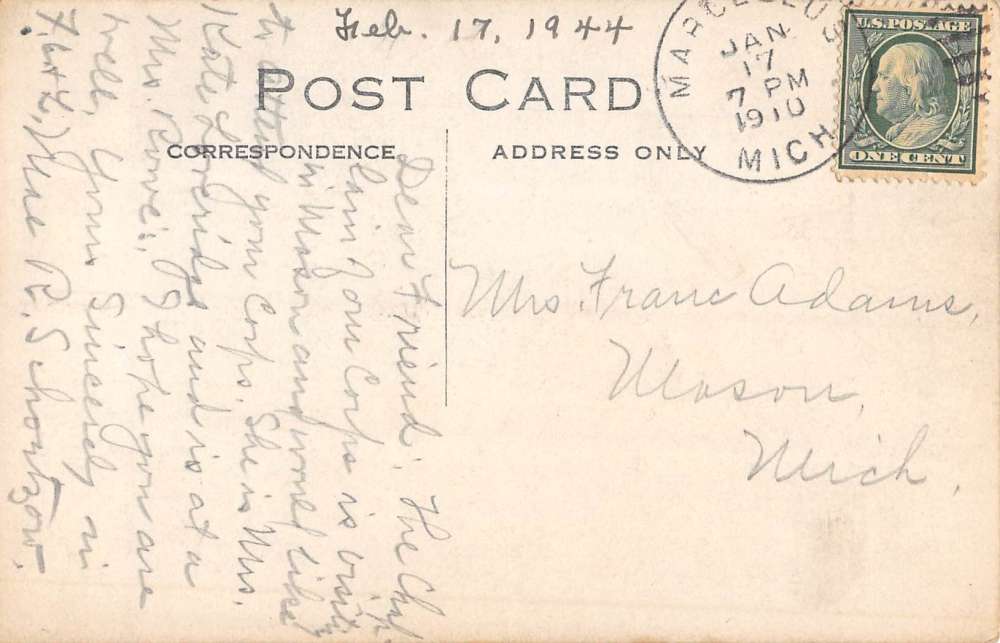 Feb. 17, 1944
POST CARD
MARCELLUS
JAN.
17
7 PM
1910
MICH
U.S. POSTAGE
ONE CENT
CORRESPONDENCE
ADDRESS ONLY
Mrs. Franc Adams,
Mason,
Mich.
Dear Friend: The Chap-
lain of our Corps is visiting
in Mason and would like
to attend your Corps. She is Mrs.
Kate Loveridge and is at a
Mrs. Rowe's, I hope you are
well, Yours Sincerely in
F, C & L, Mae R. Schontzow.